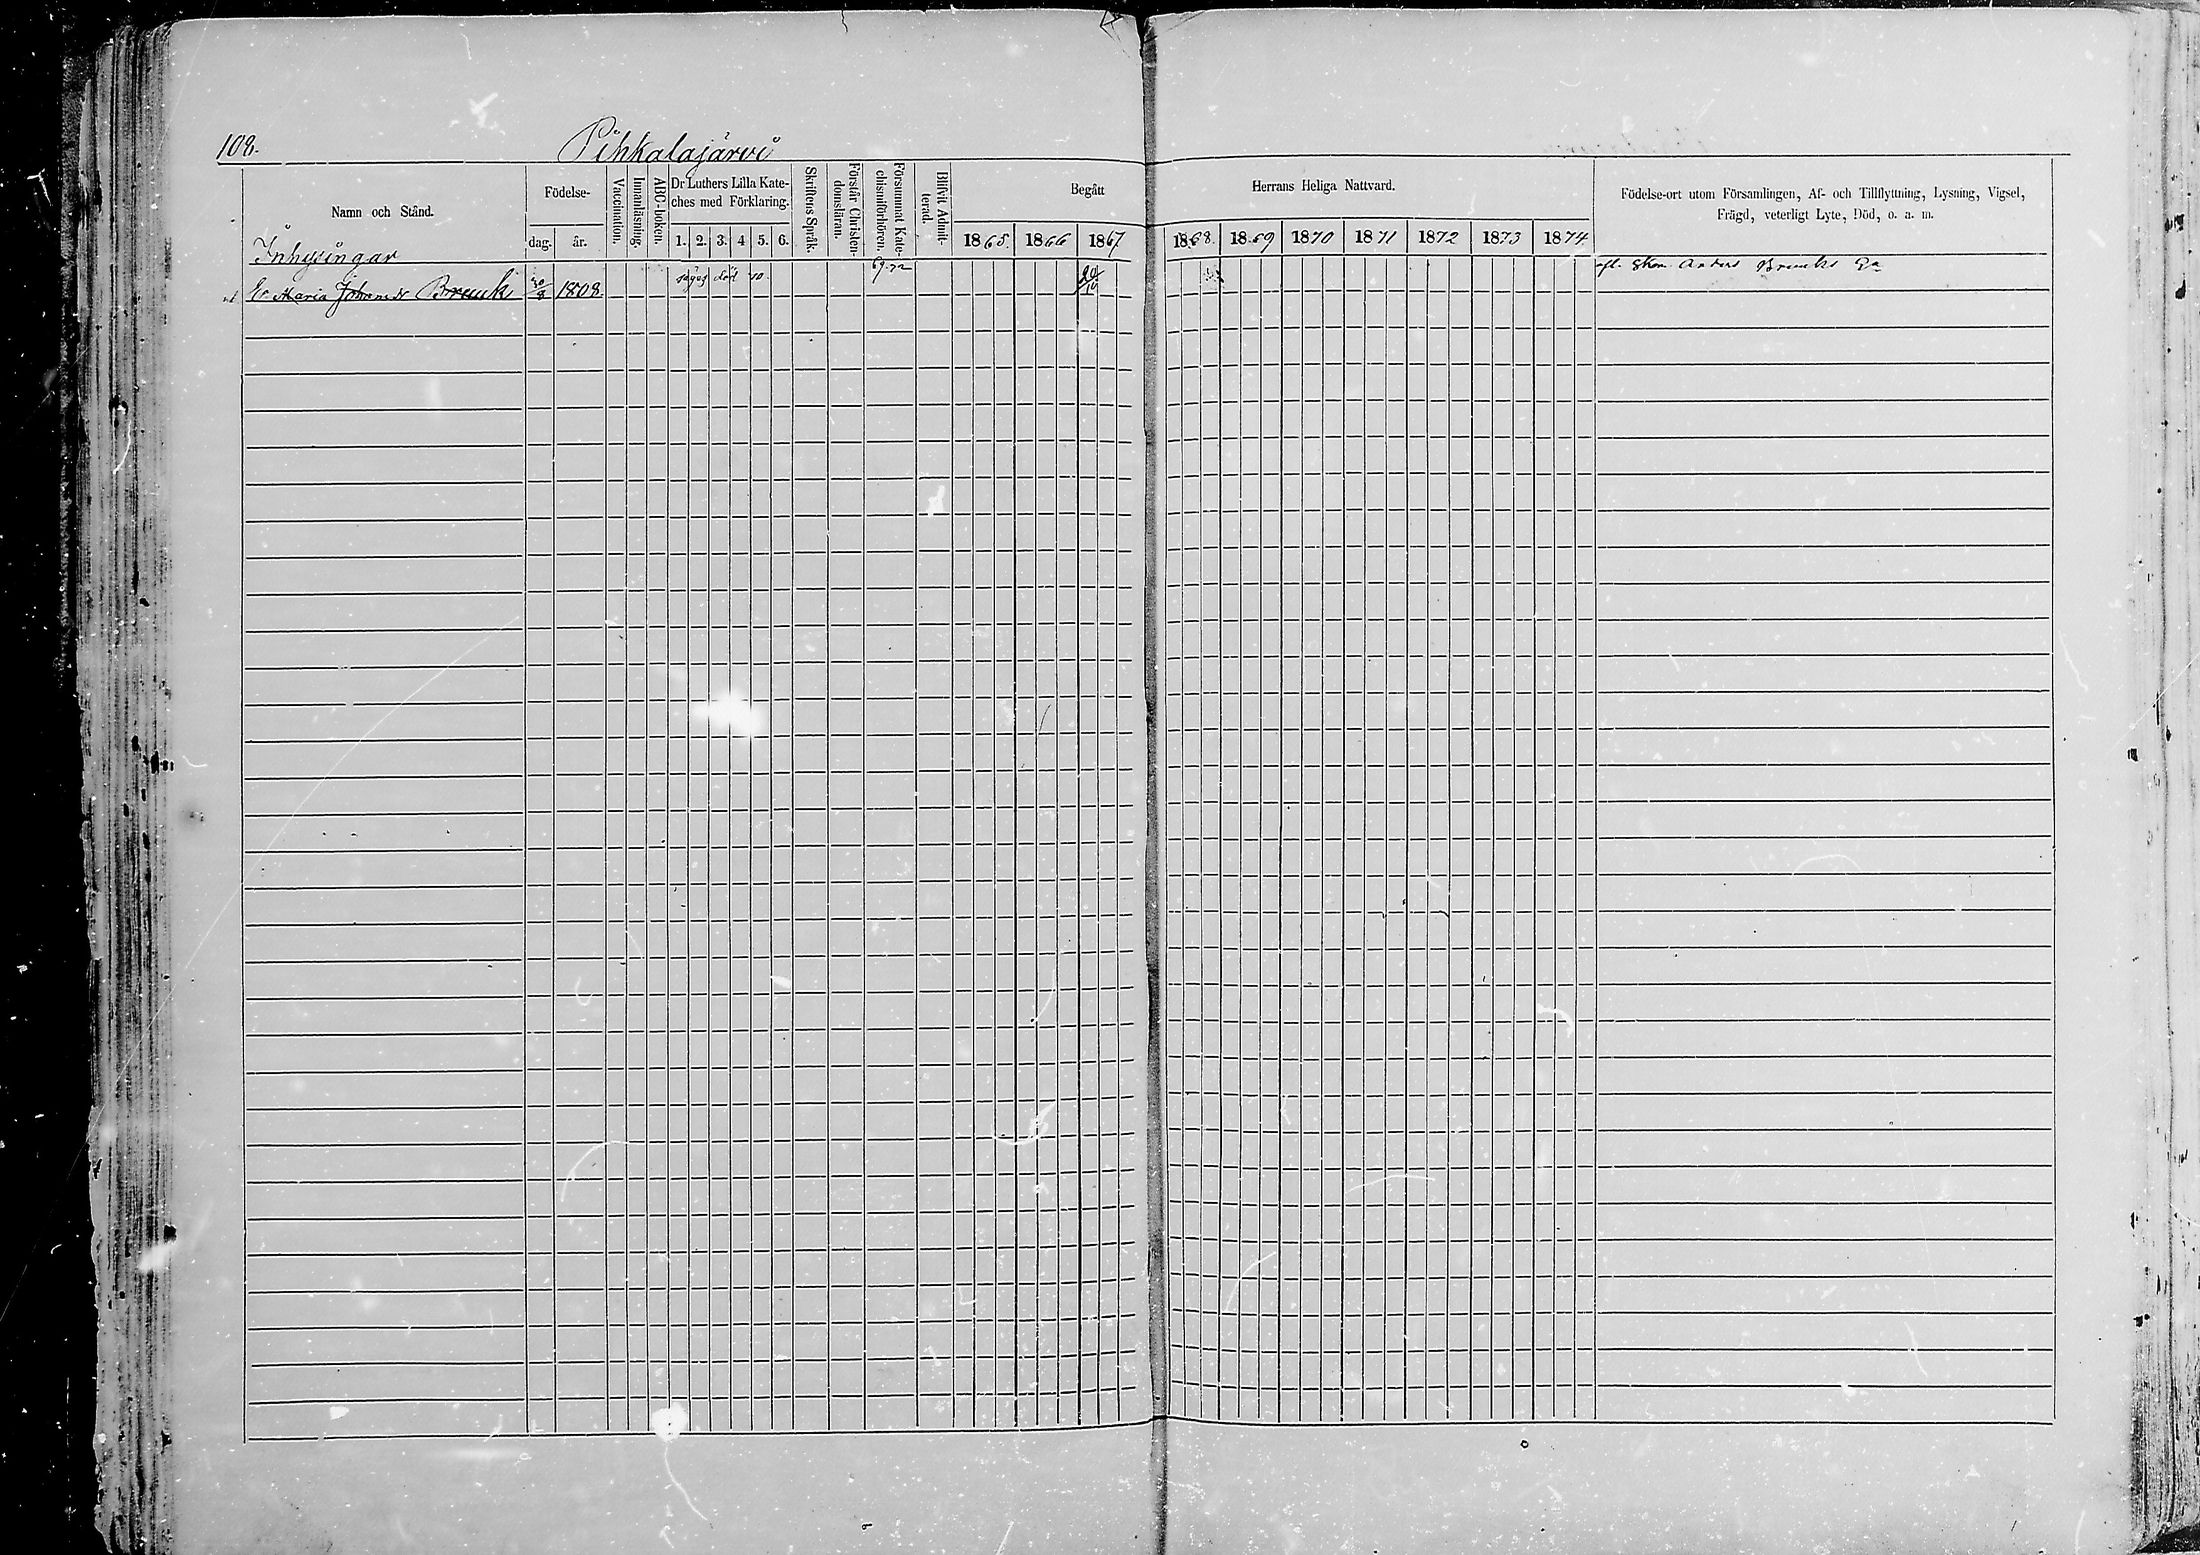 108.
Pihkalajärvi
Namn och Stånd.
Födelse-
dag.
år.
Vaccination.
Innanläsning.
ABC-boken.
Dr Luthers Lilla Kate-
ches med Förklaring.
1. 2. 3. 4 5. 6.
Skriftens Språk.
Förstår Christen-
domsläran.
Försummat Kate-
chismiförhören.
Blifvit Admit-
terad.
Begått
Herrans Heliga Nattvard.
1865. 1866 1867 1868. 1869 1870 1871 1872 1873 1874
Födelse-ort utom Församlingen, Af- och Tillflyttning, Lysning, Vigsel,
Frägd, veterligt Lyte, Död, o. a. m.
Inhysingar
Maria Johansdr Brunk 30/8 1808. säges död 69-72 20/10
Anders